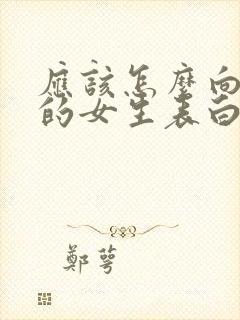 應該怎麼向
的女生表白
鄭萼